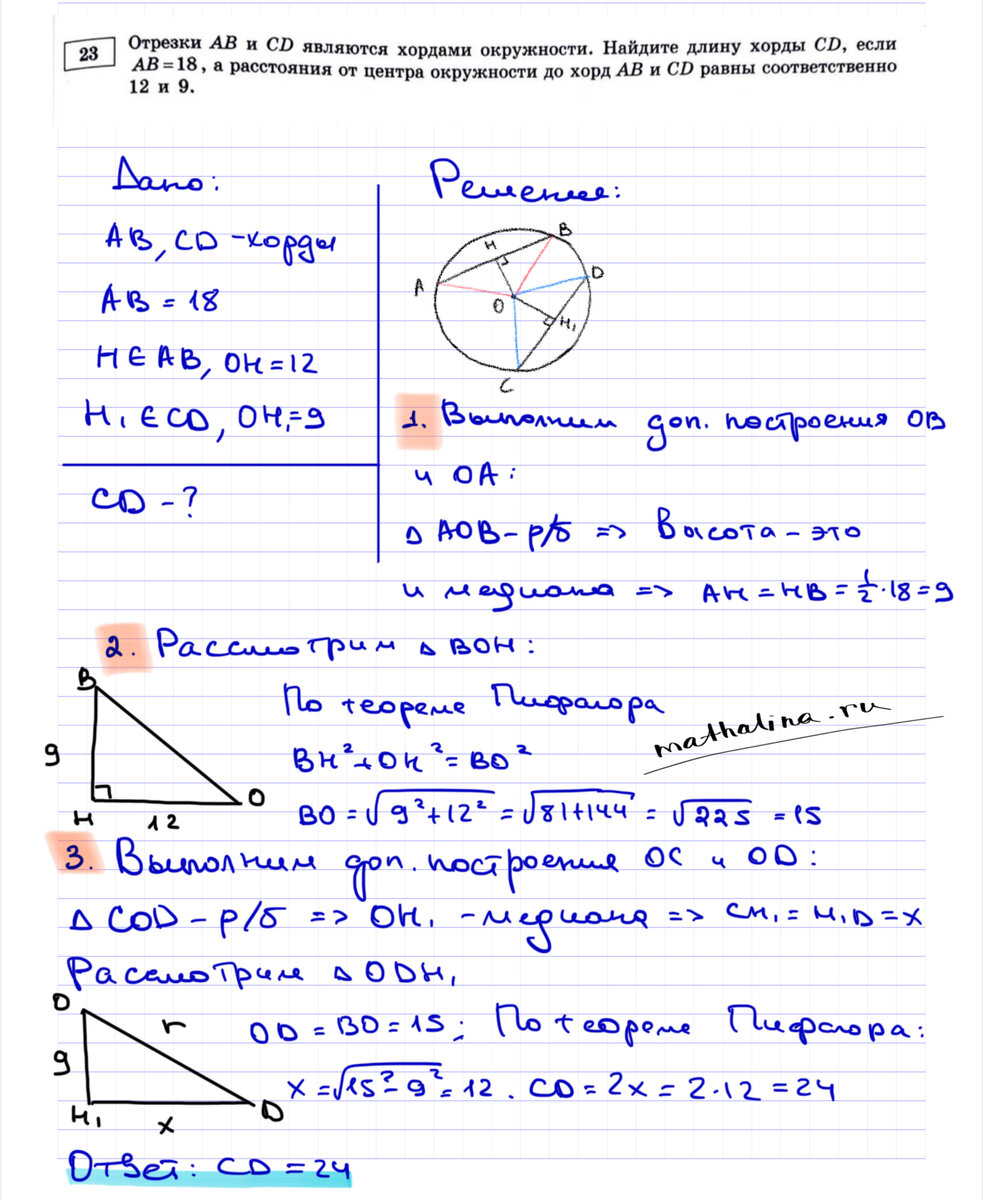 23
Отрезки AB и CD являются хордами окружности. Найдите длину хорды CD, если
AB=18, а расстояния от центра окружности до хорд AB и CD равны соответственно
12 и 9.
Дано:
AB, CD -хорды
AB = 18
H∈AB, OH=12
H₁∈CD, OH₁=9
CD -?
Решение:
B
H
D
A
O
H₁
C
1. Выполним доп. построения OB
и OA:
△ AOB - р/б => Высота - это
и медиана => AH = HB = 1/2 · 18 = 9
2. Рассмотрим △ BOH:
B
9
H
12
O
По теореме Пифагора
mathalina.ru
BH² + OH² = BO²
BO = √9²+12² = √81+144 = √225 = 15
3. Выполним доп. построения OC и OD:
△ COD - р/б => OH₁ - медиана => CH₁ = H₁D = x
Рассмотрим △ ODH₁
O
r
9
H₁
x
D
OD = BO = 15; По теореме Пифагора:
x = √15²-9² = 12. CD = 2x = 2·12 = 24
Ответ: CD = 24